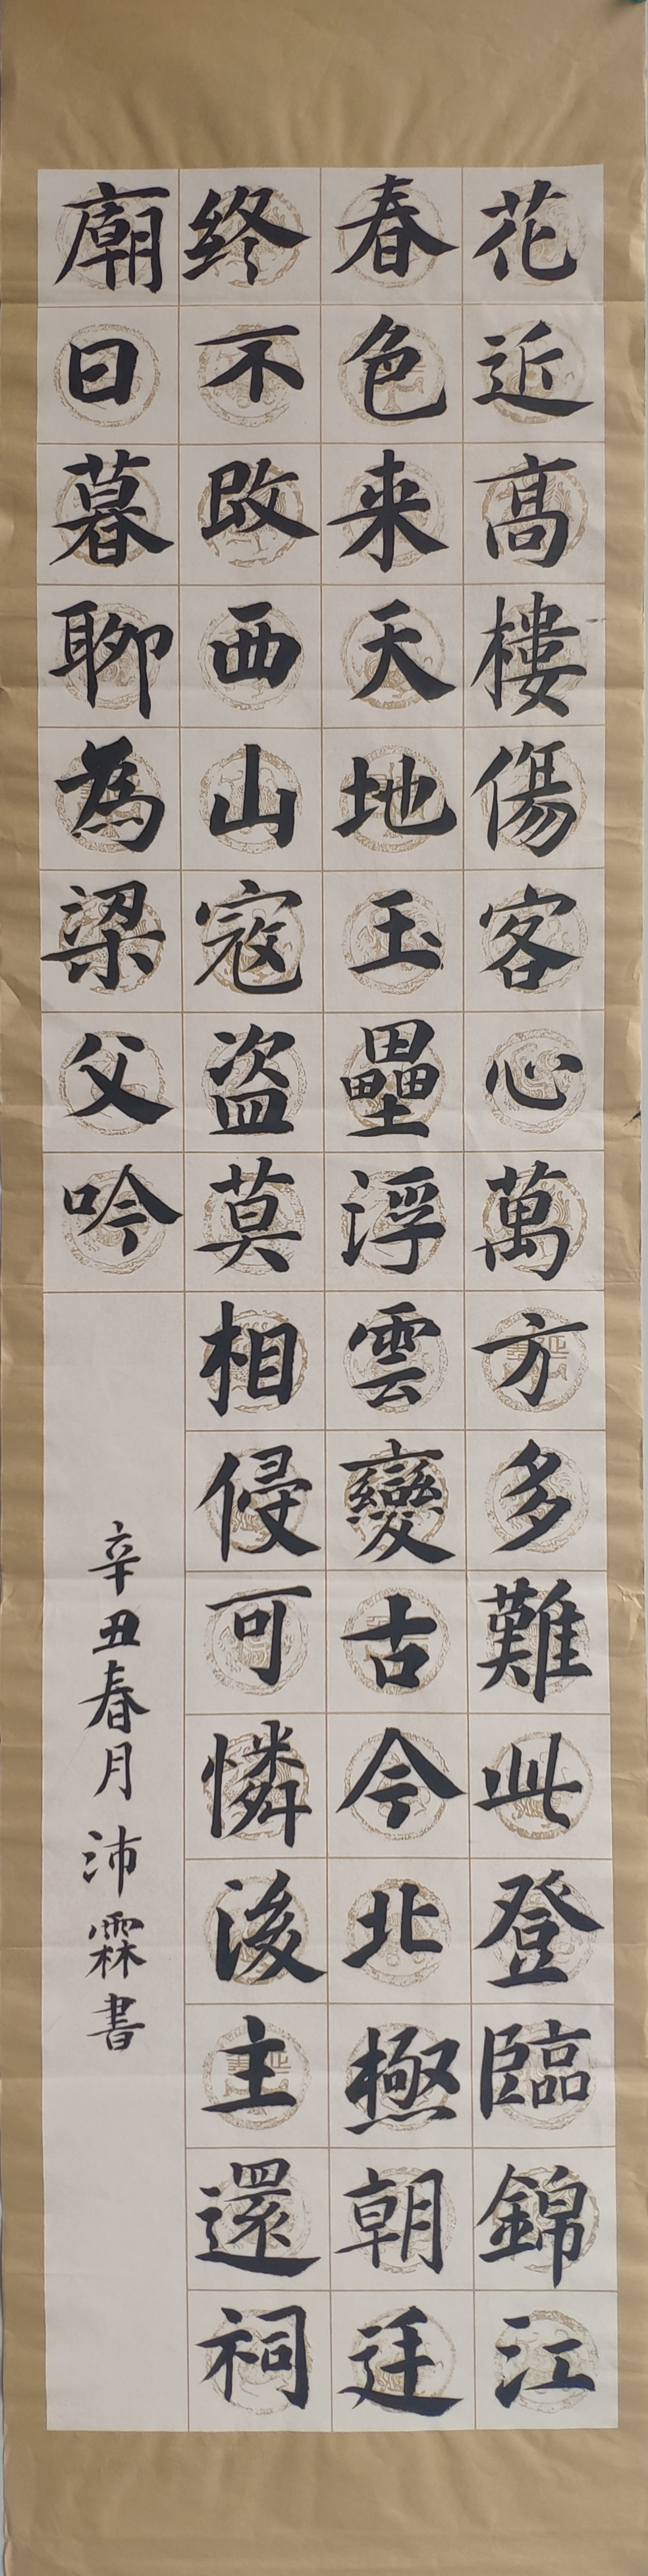 花近高樓傷客心萬方多難此登臨錦江
春色来天地玉壘浮雲變古今北極朝廷
终不改西山寇盗莫相侵可憐後主還祠
廟日暮聊為梁父吟
辛丑春月沛霖書